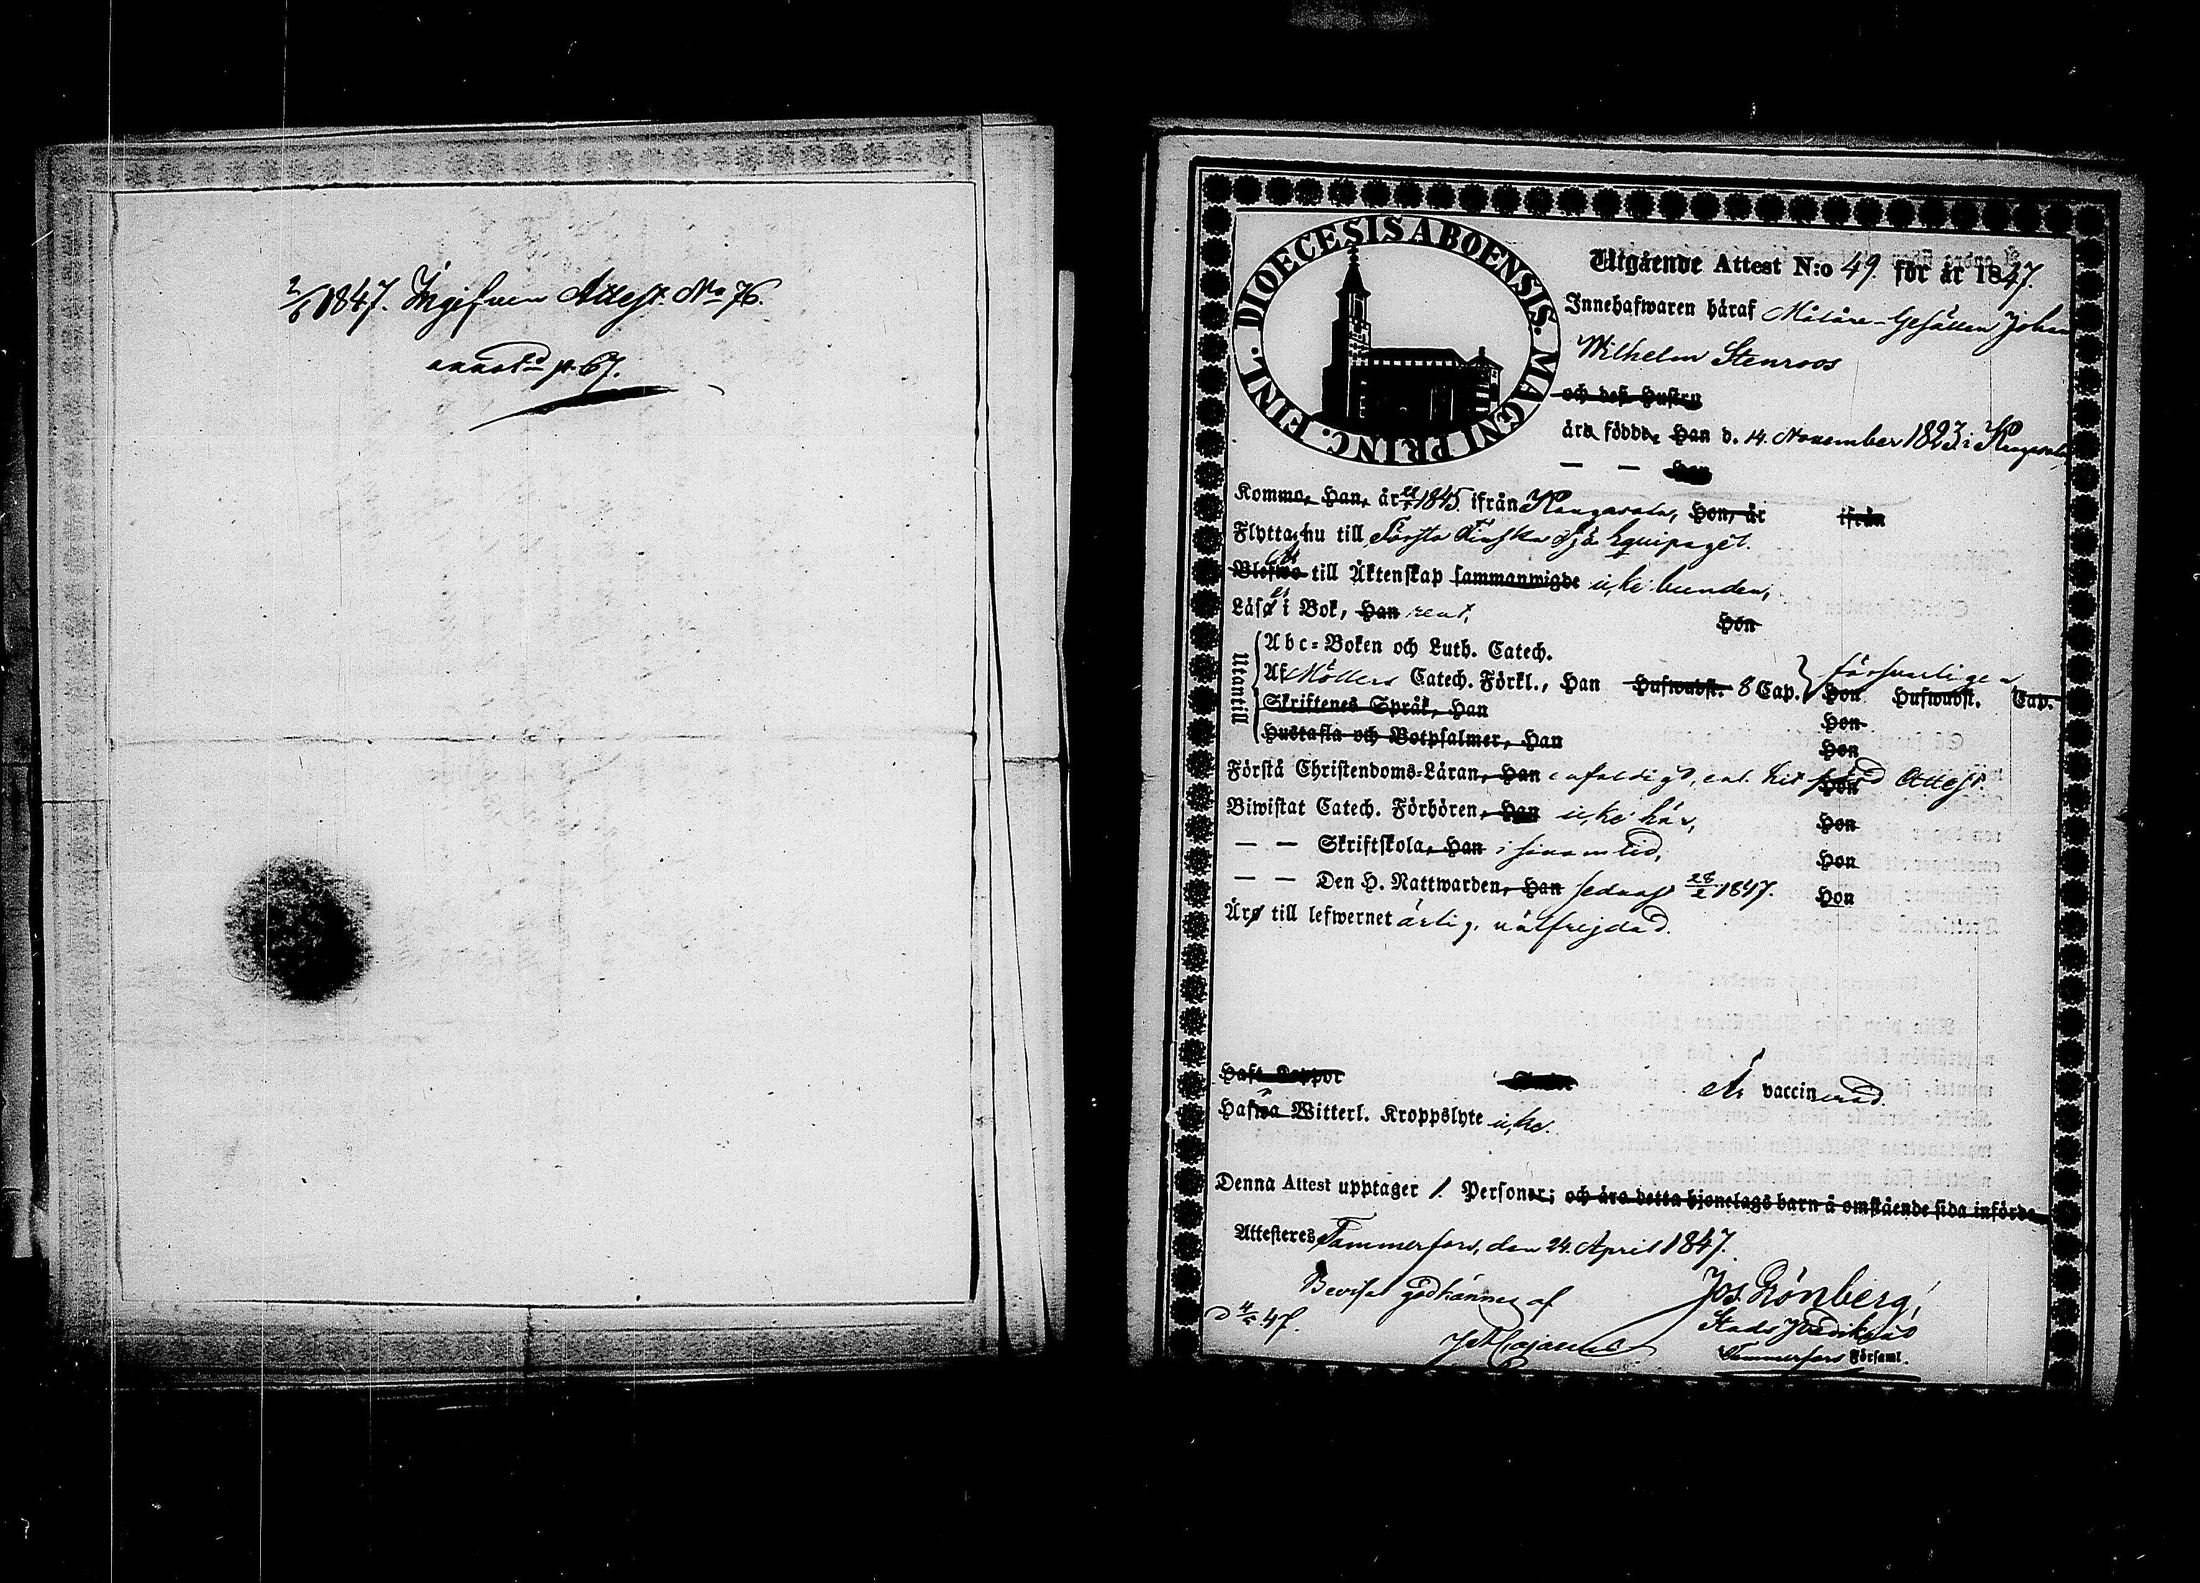 2/6 1847. Ingifven Attest No 76.
annot. p. 67.
DIOECESIS ABOENSIS. MAGNI PRINC. FINL.
Utgående Attest N:o 49. för år 1847.
Innehafwaren häraf Målare-Gesällen Johan
Wilhelm Stenroos
och deß Hustru
äro födde, Han d. 14. November 1823 i Kangasala,
— — Hon
Komma, Han, år 1845 ifrån Kangasala, Hon, år ifrån
Flytta nu till Första Finska Sjö Equipaget.
Blefwo till Äktenskap sammanwigde icke bunden,
Läsa i Bok, Han rent, Hon
Utantill
Abc-Boken och Luth. Catech.
Af Möllers Catech. Förkl., Han Hufwudst. 8 Cap. försvarligen Hon Hufwudst. Cap.
Skriftenes Språk, Han Hon
Hustafla och Botpsalmer, Han Hon
Förstå Christendoms-Läran, Han enfaldigt, enl. hit Attest. Hon
Biwistat Catech. Förhören, Han icke här, Hon
— — Skriftskola, Han i sinom tid, Hon
— — Den H. Nattwarden, Han sednast 28/2 1847. Hon
Äro till lefwernet ärlig, välfrejdad.
Haft Koppor Är vaccinerad.
Hafwa Witterl. Kroppslyte icke.
Denna Attest upptager 1. Personer; och äro detta hjonelags barn å omstående sida införde.
Attesteres Tammerfors, den 24. April 1847.
Beviset godkännes af Jos. Grönberg,
d 47. Stads Prædikant
J A Cajanus Tammerfors Församl.